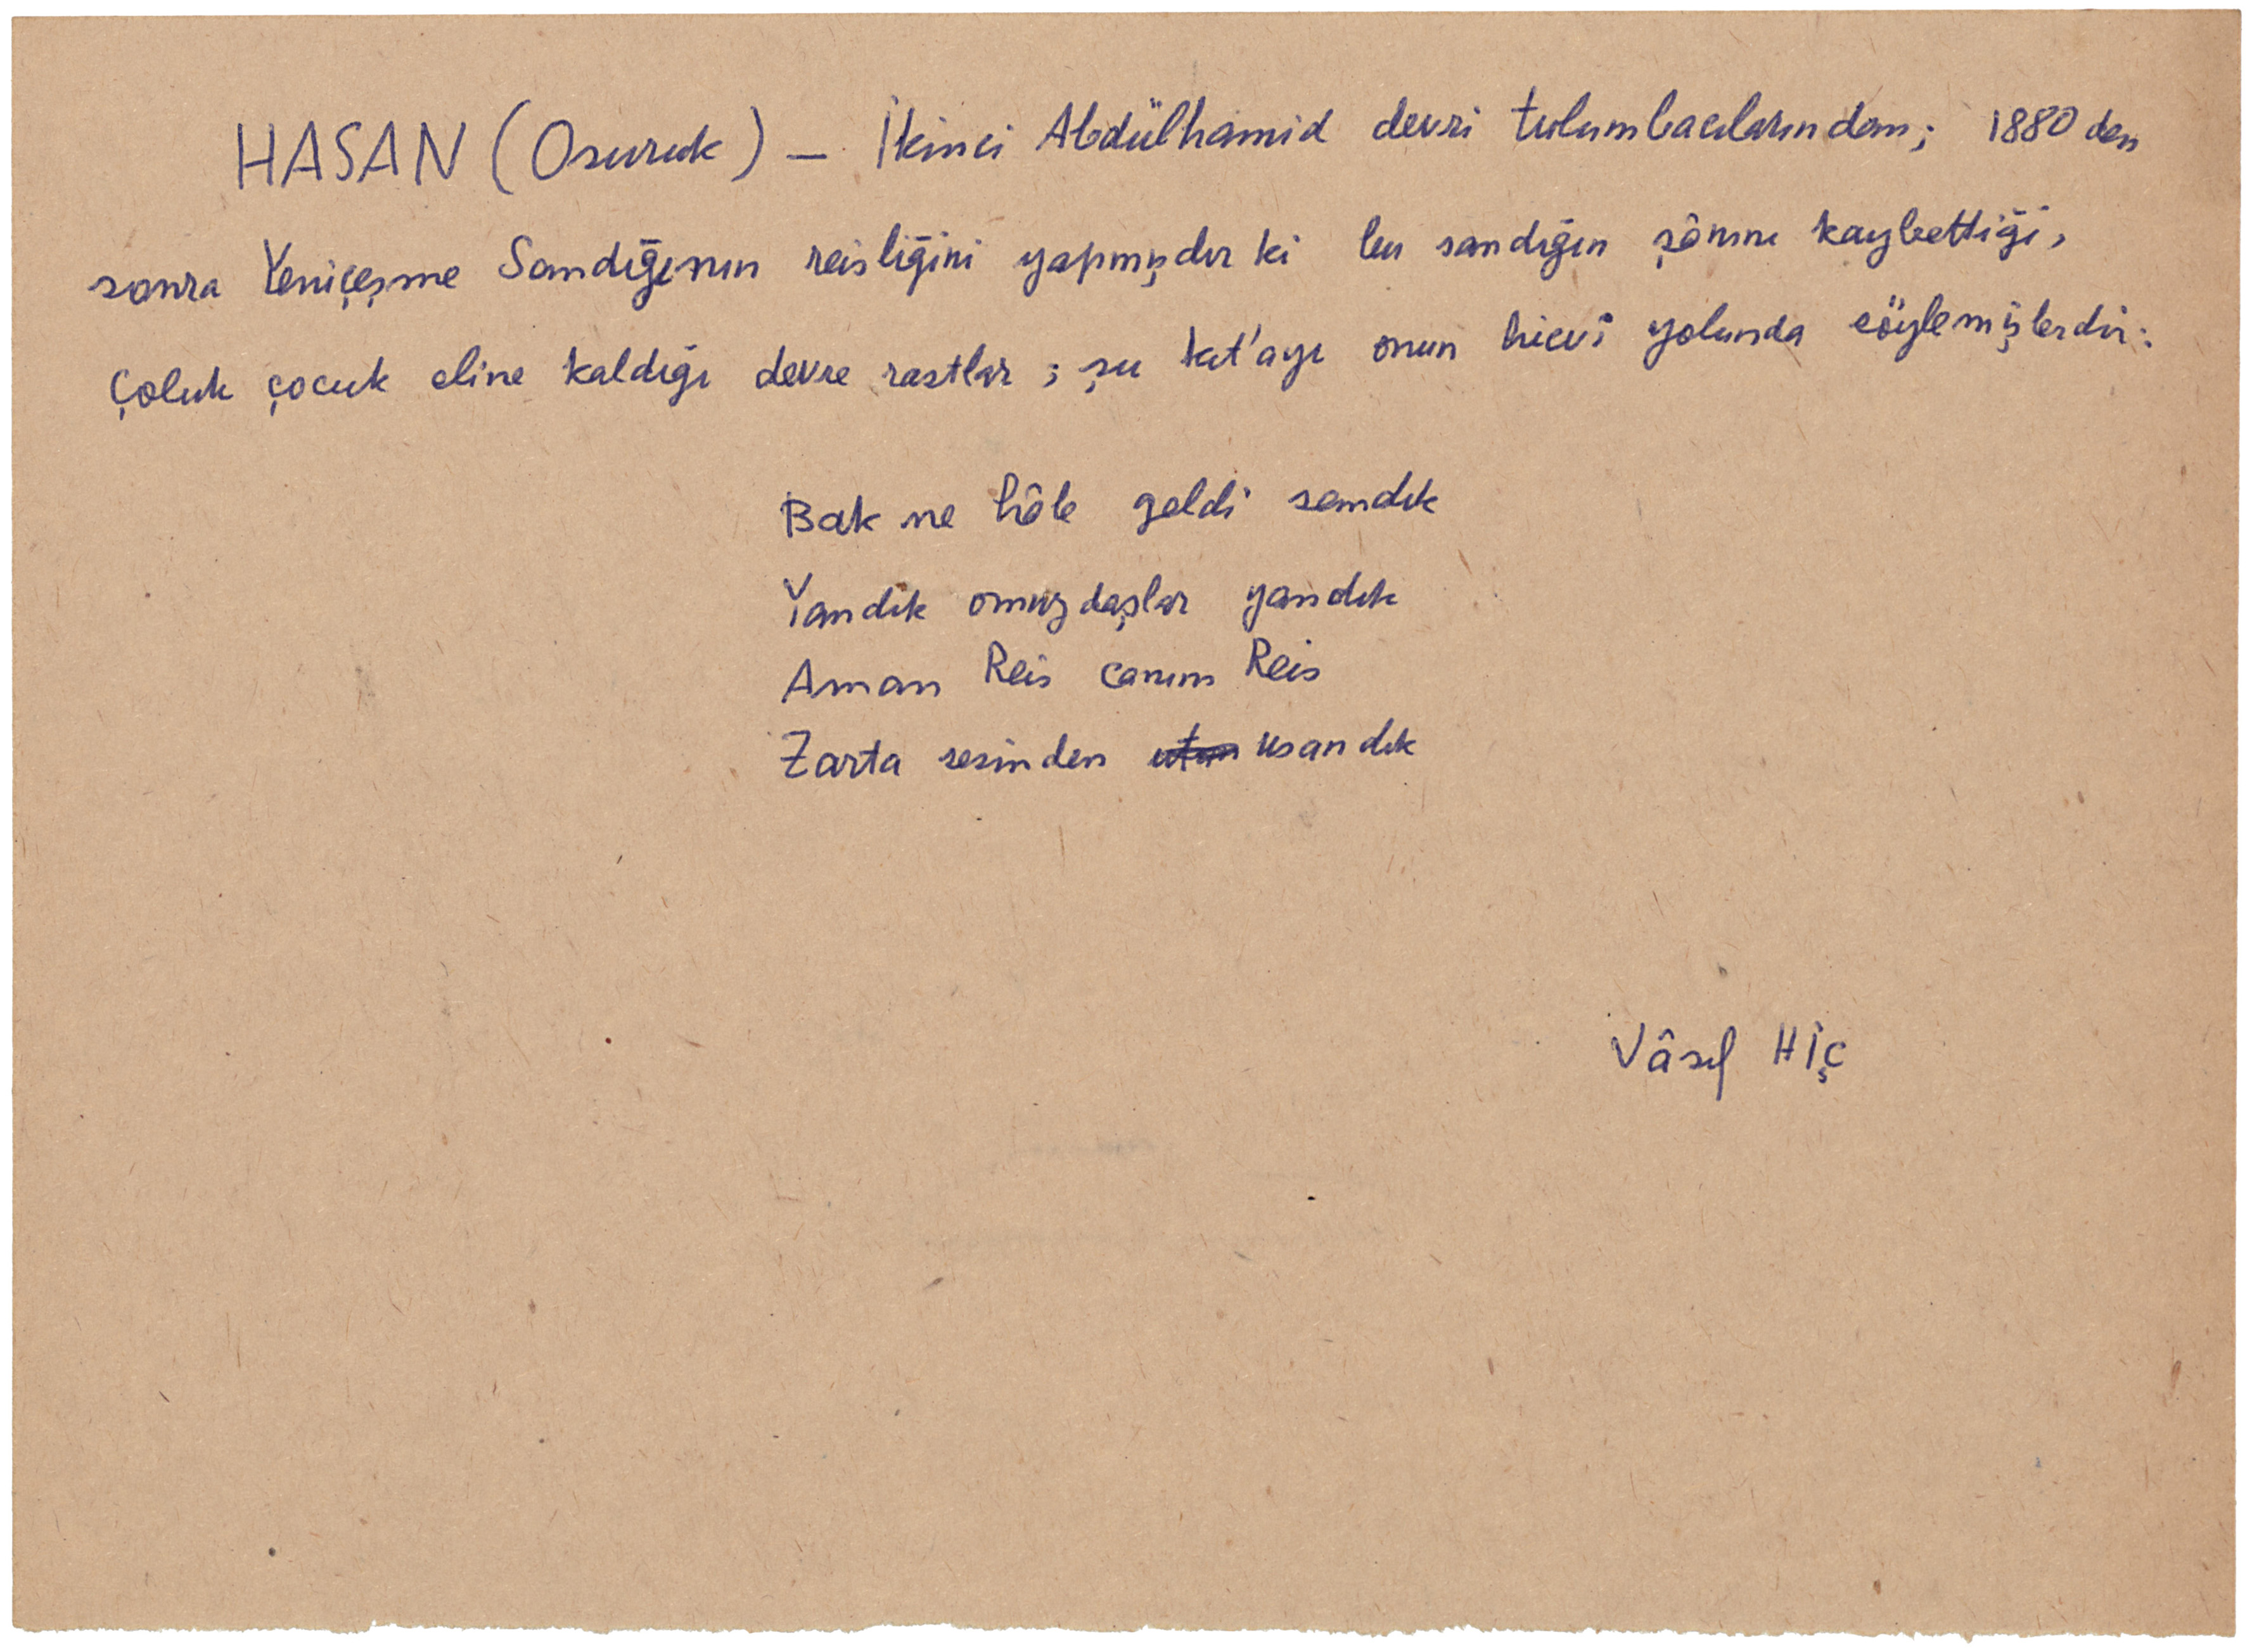 HASAN (Osuruk) — İkinci Abdülhamid devri tulumbacılarından; 1880 den
sonra Yeniçeşme Sandığının reisliğini yapmışdır ki bu sandığın şânını kaybettiği,
çoluk çocuk eline kaldığı devre rastlar; şu kıt'ayı onun hicvi yolunda söylemişlerdir:
Bak ne hâle geldi sandık
Yandık omuzdaşlar yandık
Aman Reis canım Reis
Zarta sesinden utan usandık
Vâsıf HİÇ